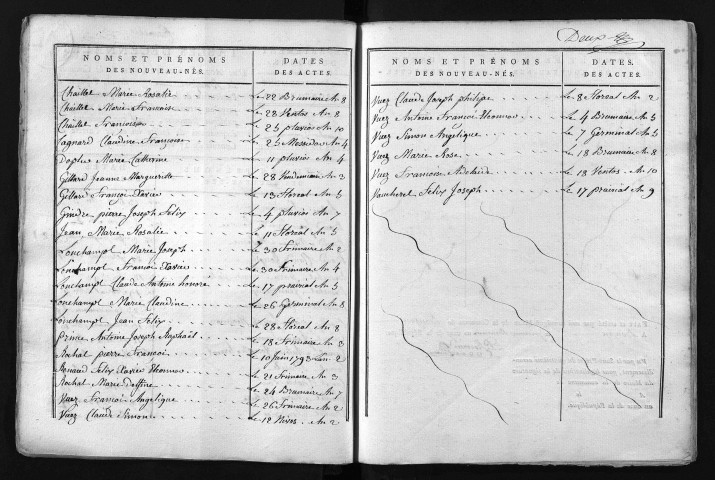 NOMS ET PRÉNOMS
DES NOUVEAU-NÉS.
DATES
DES ACTES.
Chaillet Marie Rosalie le 22 Brumaire An 8
Chaillet Marie Francoise le 28 Ventos An 8
Chaillet Francoise le 25 pluvios An 10
Claudine Francoise le 25 Messidor An 4
Dople Marie Catherine le 11 pluvios An 4
Gillard Jeanne Marguerite le 28 Vendemiaire An 3
Gillard Francois Xavier le 13 floreal An 5
Gindre pierre Joseph Felix le 4 pluvios An 7
Jean Marie Rosalie le 11 floreal An 5
Lonchampt Marie Joseph le 30 frimaire An 2
Lonchampt Francois Xavier le 30 frimaire An 4
Lonchampt Claude Antoine honore le 17 prairial An 5
Lonchampt Marie Claudine le 26 Germinal An 8
Lonchampt Jean Felix le 28 floreal An 8
prime Antoine Joseph Raphaël le 18 frimaire An 3
Rochat pierre Francois le 10 juin 1793 An 2
Renaud Felix Xavier le 21 frimaire An 3
Rochat Marie Delfine le 24 Brumaire An 7
Vuez Francois Angelique le 26 frimaire An 2
Vuez Claude Simon le 12 Nivos An 2
Deux
NOMS ET PRÉNOMS
DES NOUVEAU-NÉS.
DATES.
DES ACTES.
Vuez Claude Joseph philipe le 8 floreal An 2
Vuez Antoine Francois le 4 Brumaire An 5
Vuez Simon Angelique le 7 Germinal An 5
Vuez Marie Rose le 18 Brumaire An 8
Vuez Francoise Adelaide le 18 Ventos An 10
Vaucherel Felix Joseph le 17 prairial An 9